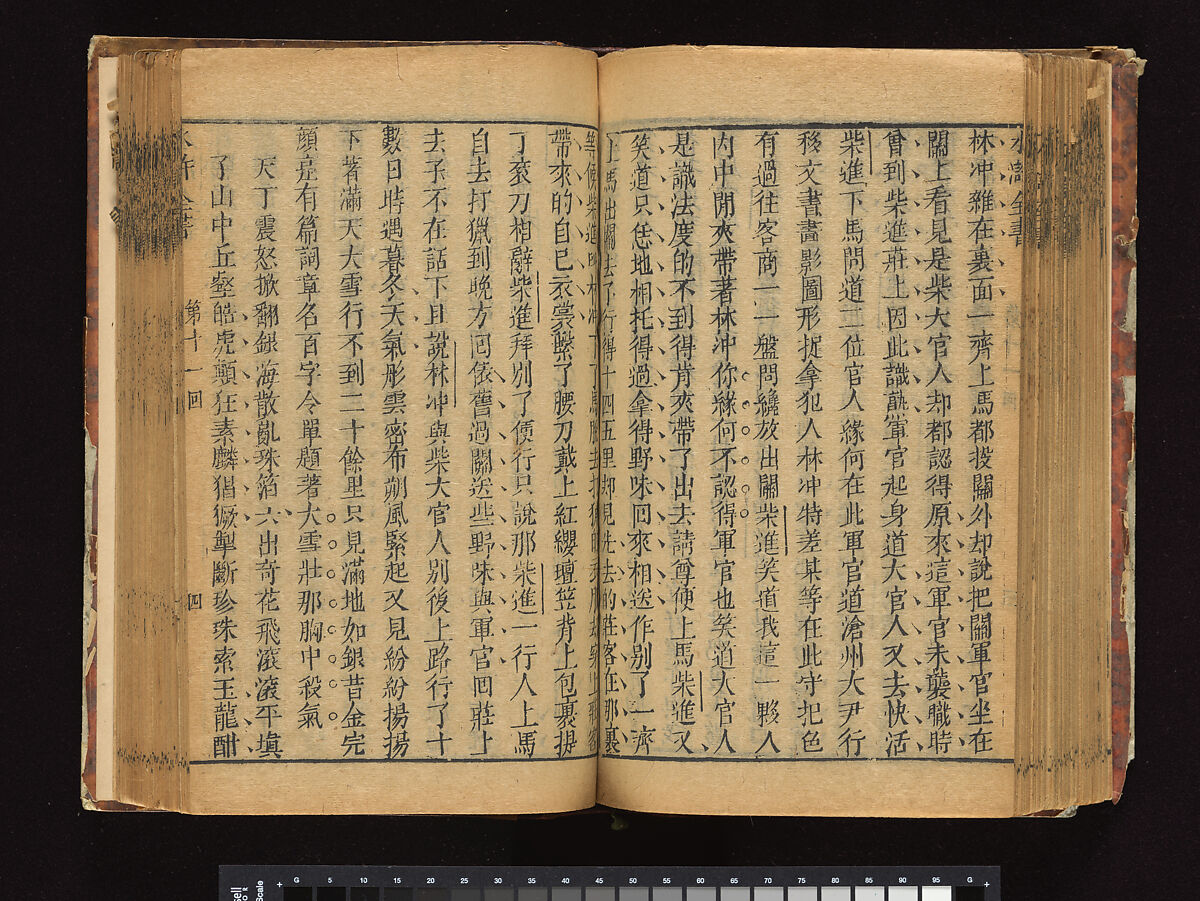 水滸全書
林冲雜在裏面一齊上馬都投關外却說把關軍官坐在
關上看見是柴大官人却都認得原來這軍官未襲職時
曾到柴進莊上因此識熟軍官起身道大官人又去快活
柴進下馬問道二位官人緣何在此軍官道滄州大尹行
移文書畫影圖形捉拿犯人林冲特差某等在此守把但
有過往客商一一盤問纔放出關柴進笑道我這一夥人
内中間夾帶著林冲你緣何不認得軍官也笑道大官人
是識法度的不到得肯夾帶了出去請尊便上馬柴進又
笑道只恁地相托得過拿得野味囘來相送作别了一齊
上馬出關去了行得十四五里却見先去的莊客在那裏
等候柴進
帶來的自己衣裳繫了腰刀戴上紅纓氊笠背上包裹提
了衮刀相辭柴進拜别了便行只說那柴進一行人上馬
自去打獵到晚方囘依舊過關送些野味與軍官囘莊上
去了不在話下且說林冲與柴大官人别後上路行了十
數日時遇暮冬天氣彤雲密布朔風緊起又見紛紛揚揚
下著滿天大雪行不到二十餘里只見滿地如銀昔金完
顔亮有篇詞章名百字令單題著大雪壯那胸中殺氣
天丁震怒掀翻銀海散亂珠箔六出奇花飛滚滚平填
了山中丘壑皓虎顛狂素麟猖獗掣斷珍珠索玉龍酣
水滸全書
第十一回
四